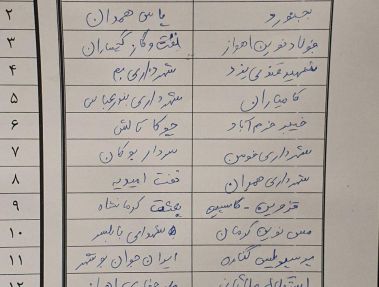 ۲ پاس همدان بجنورد
۳ نفت و گاز گچساران فولاد نوین اهواز
۴ شهرداری بم شهید قندی یزد
۵ شهرداری بندرعباس کامیاران
۶ چوکا تالش خیبر خرم آباد
۷ سردار بوکان شهرداری فومن
۸ نفت امیدیه شهرداری همدان
۹ کرمانشاه قزوین - کاسپین
۱۰ شهدای بابلسر مس نوین کرمان
۱۱ ایران جوان بوشهر
۱۲